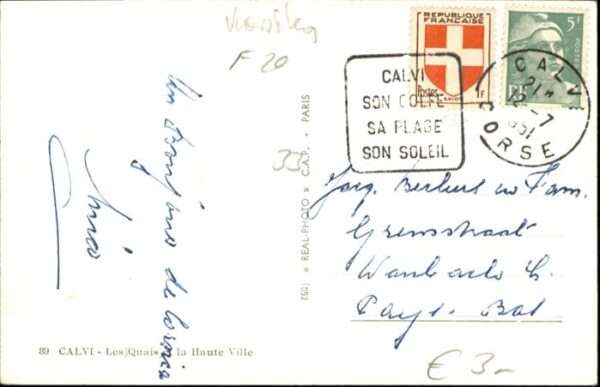 F 20
REPUBLIQUE
FRANÇAISE
Postes
1F
5F
POSTES
RF
CALVI
SON GOLFE
SA PLAGE
SON SOLEIL
CALVI
21H
12-7
1951
CORSE
Un bonjour de Corsica
33
(SD) ✱ REAL-PHOTO ✱ C.A.P. - PARIS
en Fam.
Grensstraat
Pays-Bas
89 CALVI - Les Quais la Haute Ville
€ 3-